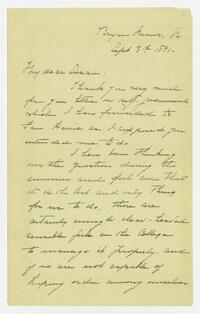 Bryn Mawr, Pa
Sept 8th 1891.
My dear Susan:
Thank you very much
for your letter in self government
which I have forwarded to
as I supposed you
intended me to do.
I have been thinking
over the question during the
summer and feel sure that
it is the best and only thing
for us to do, there are
certainly enough clear-headed
sensible girls in the College
to manage it properly and
if we are not capable of
keeping order among ourselves